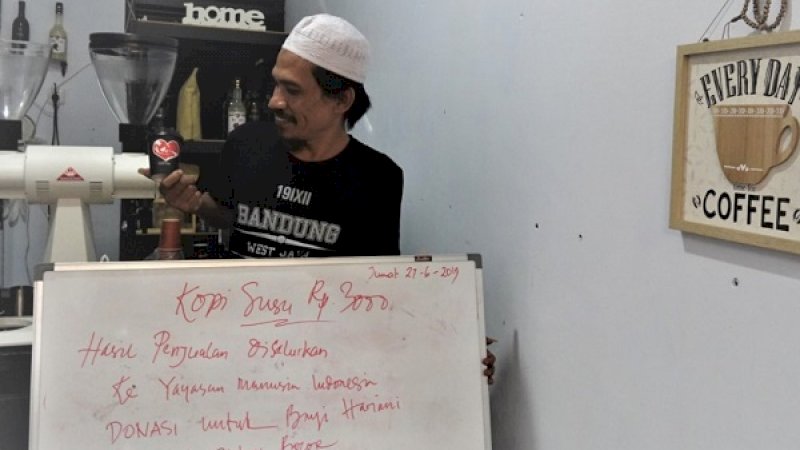 home
EVERY DAY
COFFEE
19IXII
BANDUNG
WEST JA
Jumat 27-6-2019
Kopi Susu Rp. 3000
Hasil Penjualan Disalurkan
Ke Yayasan Manusia Indonesia
DONASI untuk Hariani